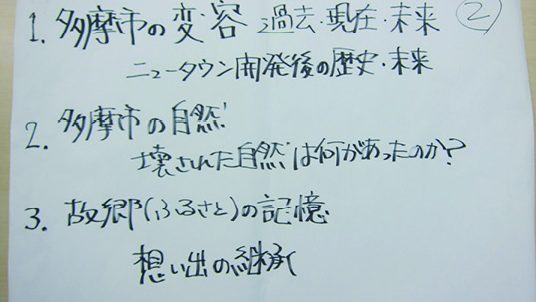 1. 多摩市の変容 過去・現在・未来 ②
ニュータウン開発後の歴史・未来
2. 多摩市の自然
壊された自然は何があったのか?
3. 故郷(ふるさと)の記憶
想い出の継承